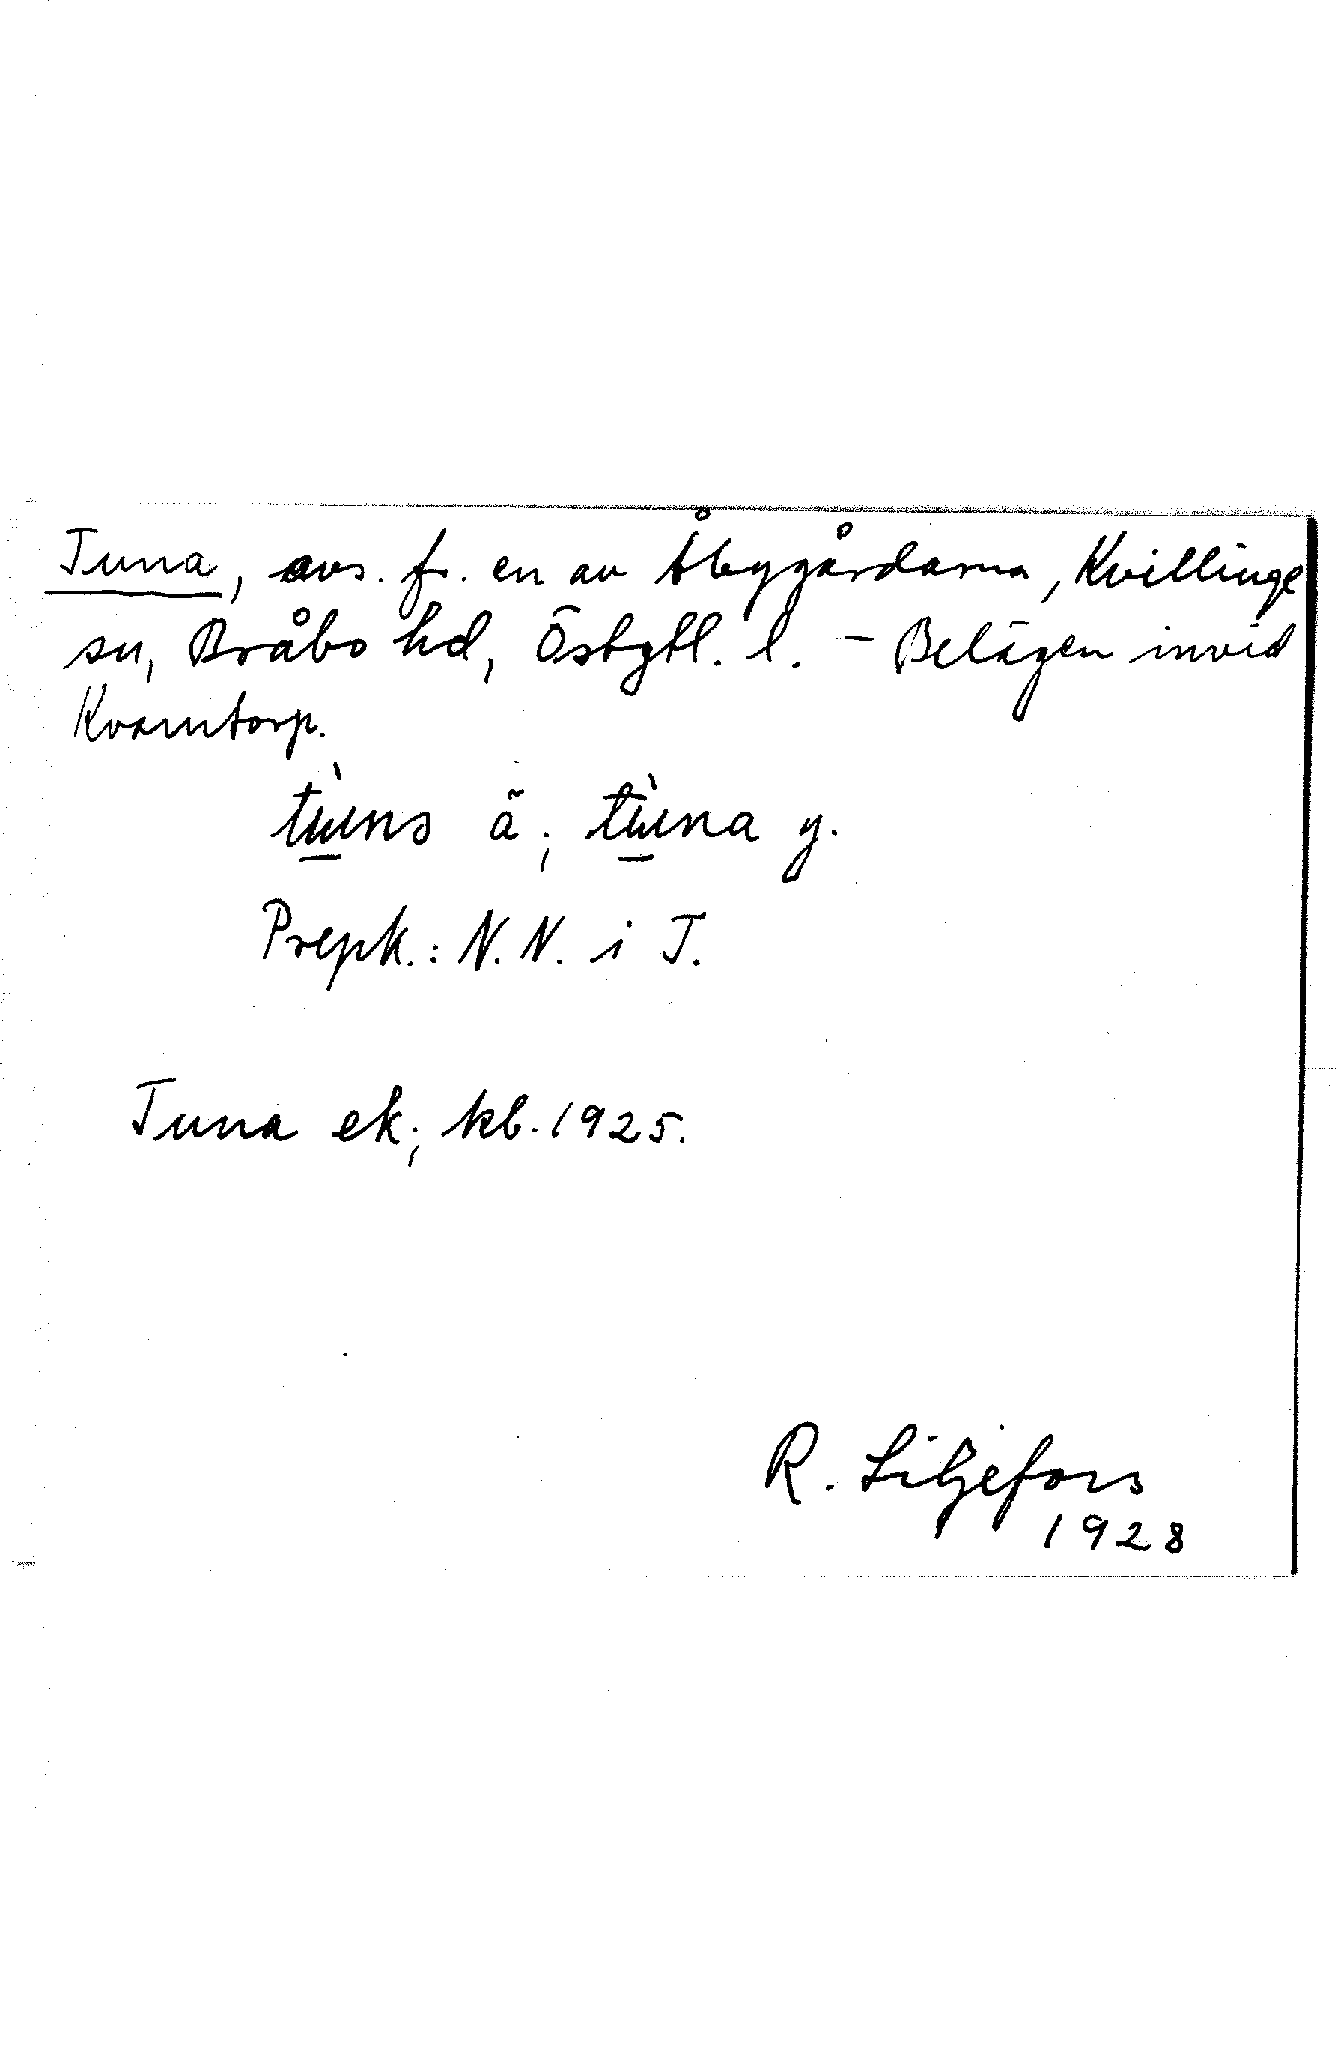 Tuna, avs. fr. en av Åbygårdarna, Kvillinge
sn, Bråbo hd, Östgtl. l. - Belägen invid
Kvarntorp.
ä; y.
Prepk.: N. N. i T.
Tuna ek; kb. 1925.
R. Liljefors
1928